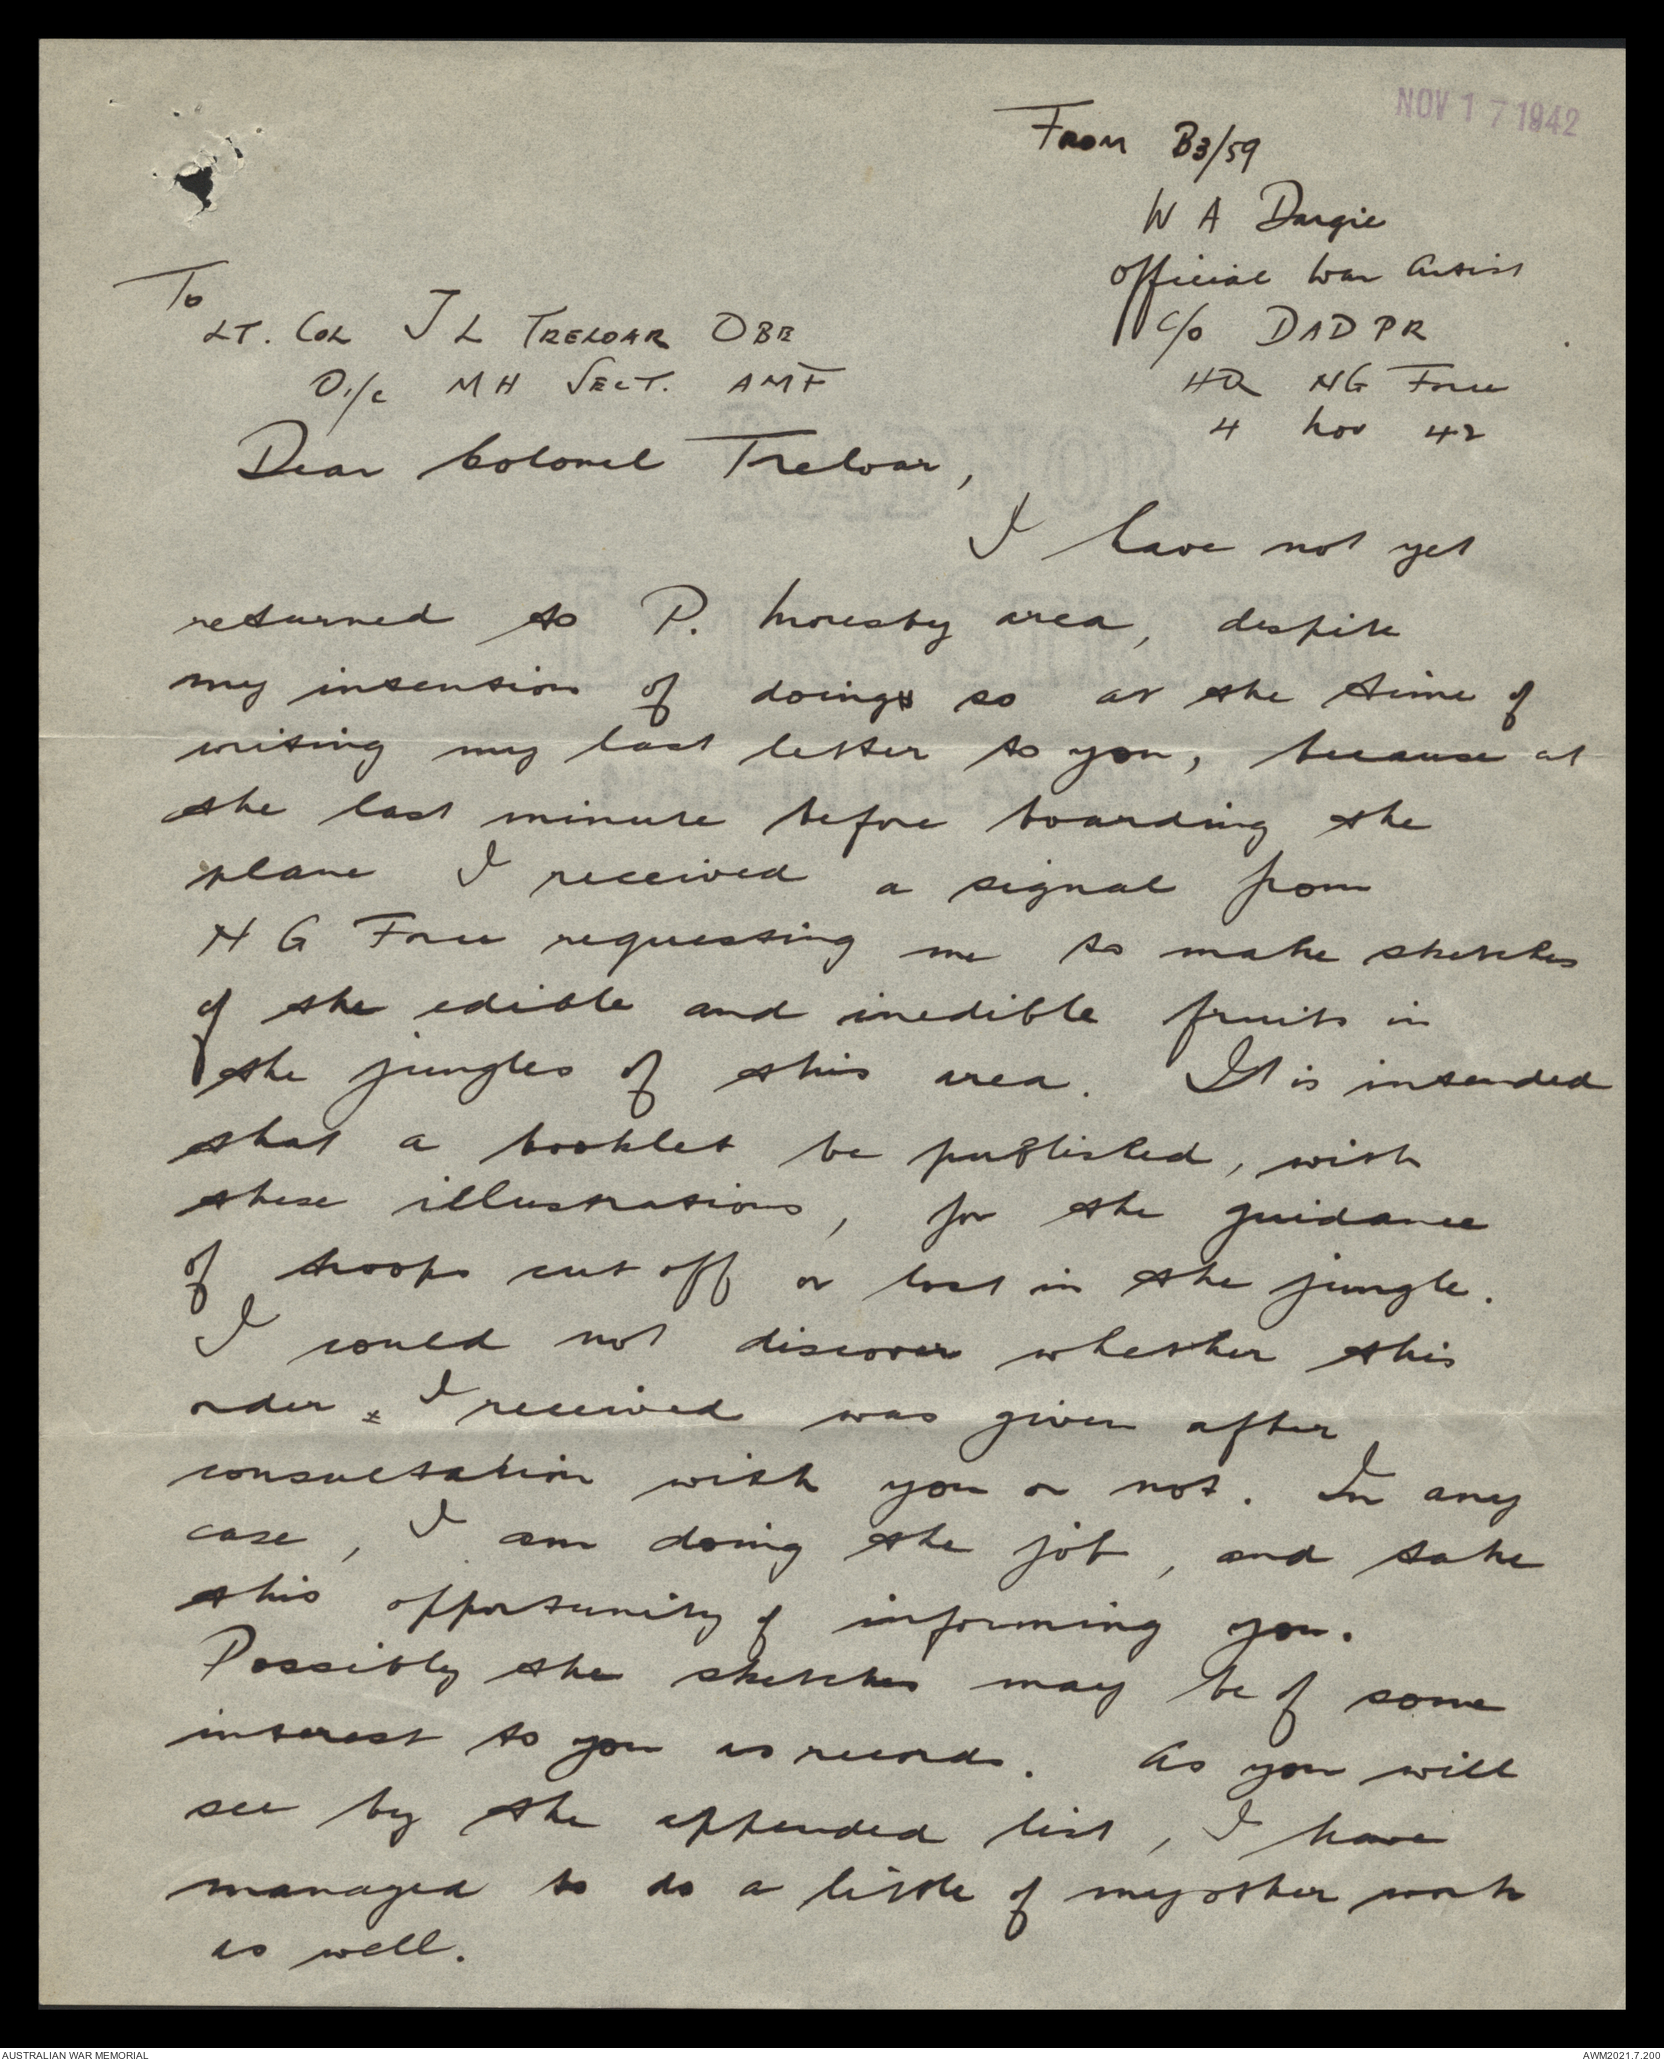 NOV 17 1942
From B3/59
W A Dargie
Official War Artist
c/o DADPR
HQ NG Force
4 Nov 42
To
LT. COL J L TRELOAR OBE
O i/c MH SECT. AMF
Dear Colonel Treloar,
I have not yet
returned to P. Moresby area, despite
my intention of doing so at the time of
writing my last letter to you, because at
the last minute before boarding the
plane I received a signal from
N G Force requesting me to make sketches
of the edible and inedible fruits in
the jungles of this area. It is intended
that a booklet be published, with
these illustrations, for the guidance
of troops cut off or lost in the jungle.
I could not discover whether this
order I received was given after
consultation with you or not. In any
case, I am doing the job, and take
this opportunity of informing you.
Possibly the sketches may be of some
interest to you as records. As you will
see by the appended list, I have
managed to do a little of my other work
as well.
AUSTRALIAN WAR MEMORIAL
AWM2021.7.200